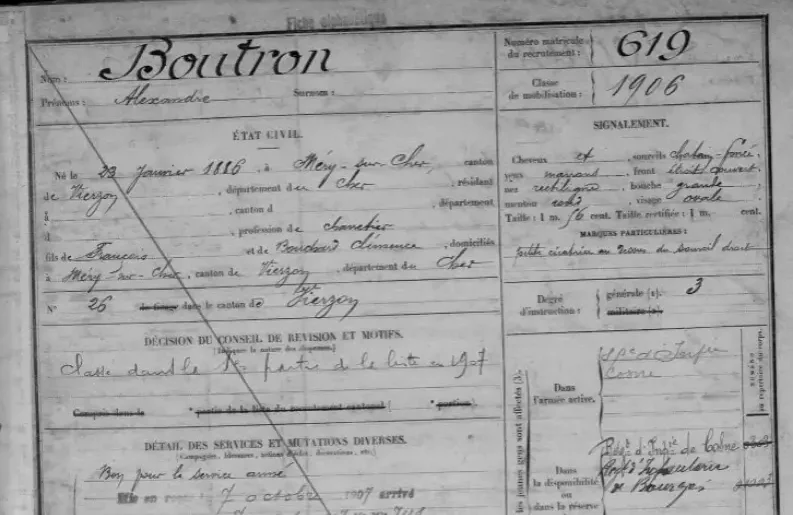 Fiche alphabétique
Nom : Boutron
Prénoms : Alexandre Surnom :
Numéro matricule du recrutement : 619
Classe de mobilisation : 1906
ÉTAT CIVIL.
Né le 23 janvier 1886, à Méry-sur-Cher, canton
de Vierzon, département du Cher, résidant
à , canton d , département
d , profession de charretier
fils de François et de Bouchard Clémence, domiciliés
à Méry-sur-Cher, canton de Vierzon, département du Cher
N° 26 de tirage dans le canton de Vierzon
DÉCISION DU CONSEIL DE REVISION ET MOTIFS.
(Indiquer la nature des dispenses.)
Classé dans la partie de la liste en 1907
Compris dans la partie de la liste du recrutement cantonal ( portion)
DÉTAIL DES SERVICES ET MUTATIONS DIVERSES.
(Campagnes, blessures, actions d'éclat, décorations, etc.)
Bon pour le service armé
Mis en route 7 octobre 1907 arrivé
SIGNALEMENT.
Cheveux et sourcils châtain foncé,
yeux marrons, front étroit couvert,
nez rectiligne, bouche grande,
menton rond, visage ovale
Taille : 1 m. 56 cent. Taille rectifiée : 1 m. cent.
MARQUES PARTICULIÈRES :
petite cicatrice au dessus du sourcil droit
Degré d'instruction : générale (1). 3
militaire (2).
les jeunes gens sont affectés (3).
NUMÉRO au répertoire du corps.
Dans l'armée active.
Cosne
Dans la disponibilité ou dans la réserve
de Cosne
Rég. d'Infanterie
de Bourges